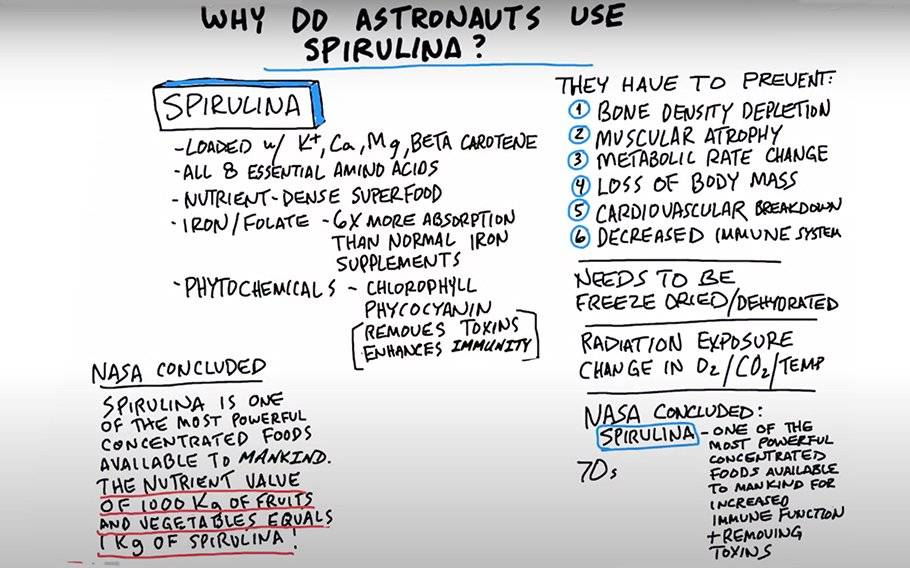 WHY DO ASTRONAUTS USE
SPIRULINA?
SPIRULINA
-LOADED w/ K+, Ca, Mg, BETA CAROTENE
-ALL 8 ESSENTIAL AMINO ACIDS
-NUTRIENT-DENSE SUPERFOOD
-IRON/FOLATE - 6X MORE ABSORPTION
THAN NORMAL IRON
SUPPLEMENTS
-PHYTOCHEMICALS - CHLOROPHYLL
PHYCOCYANIN
[REMOVES TOXINS
ENHANCES IMMUNITY]
NASA CONCLUDED
SPIRULINA IS ONE
OF THE MOST POWERFUL
CONCENTRATED FOODS
AVAILABLE TO MANKIND.
THE NUTRIENT VALUE
OF 1000 Kg OF FRUITS
AND VEGETABLES EQUALS
1 Kg OF SPIRULINA!
THEY HAVE TO PREVENT:
1 BONE DENSITY DEPLETION
2 MUSCULAR ATROPHY
3 METABOLIC RATE CHANGE
4 LOSS OF BODY MASS
5 CARDIOVASCULAR BREAKDOWN
6 DECREASED IMMUNE SYSTEM
NEEDS TO BE
FREEZE DRIED/DEHYDRATED
RADIATION EXPOSURE
CHANGE IN O2/CO2/TEMP
NASA CONCLUDED:
SPIRULINA - ONE OF THE
70s MOST POWERFUL
CONCENTRATED
FOODS AVAILABLE
TO MANKIND FOR
INCREASED
IMMUNE FUNCTION
+ REMOVING
TOXINS